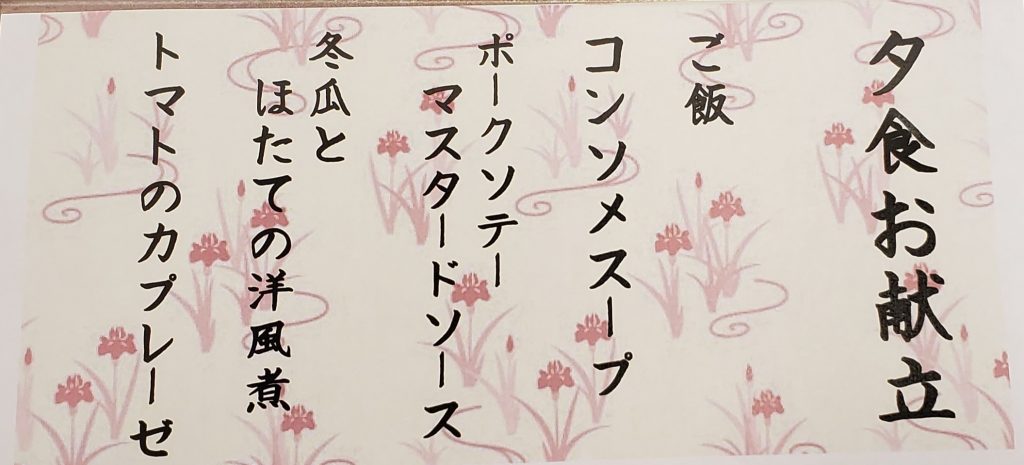 夕食お献立
ご飯
コンソメスープ
ポークソテー
マスタードソース
冬瓜と
ほたての洋風煮
トマトのカプレーゼ